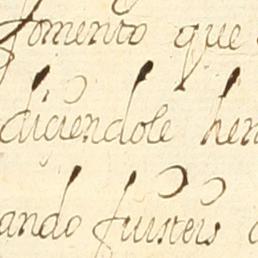 fomento que
diçiendole her
ando fuisteis